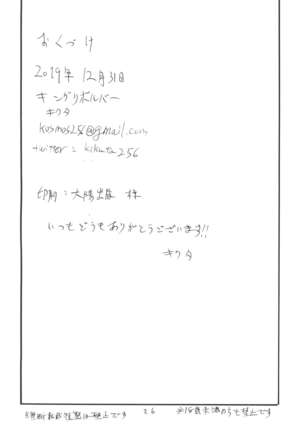 おくづけ
2019年 12月31日
キングリボルバー
キクタ
kosmos256@gmail.com
twitter: kikuta256
印刷: 太陽出版 株
いつもどうもありがとうございます!!
キクタ
※無断転載複製は禁止です 26 ※18歳未満のらも禁止です